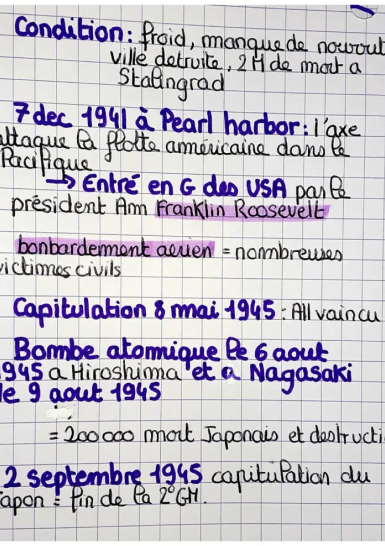 Condition: froid, manque de nourout
ville detruite, 2M de mort a
Stalingrad
7 dec 1941 à Pearl harbor: l'axe
attaque la flotte américaine dans le
Pacifique
→ Entré en G des USA par le
président Am Franklin Roosevelt
bonbardement aerien = nombreuses
victimes civils
Capitulation 8 mai 1945 : All vaincu
Bombe atomique le 6 aout
1945 a Hiroshima et a Nagasaki
le 9 aout 1945
= 200 000 mort Japonais et destructi
2 septembre 1945 capitulation du
Japon = fin de la 2°GM.